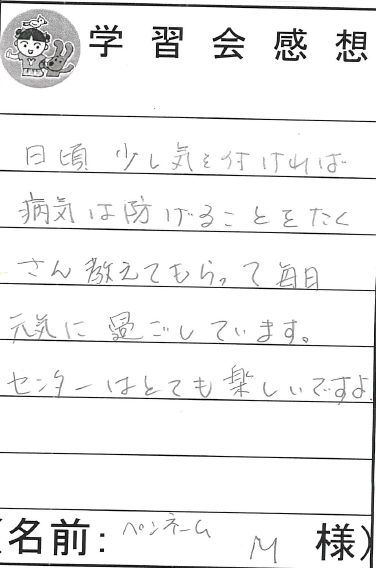 学習会感想
日頃 少し気を付ければ
病気は防げることをたく
さん教えてもらって毎日
元気に過ごしています。
センターはとても楽しいですよ
(名前: ペンネーム M 様)